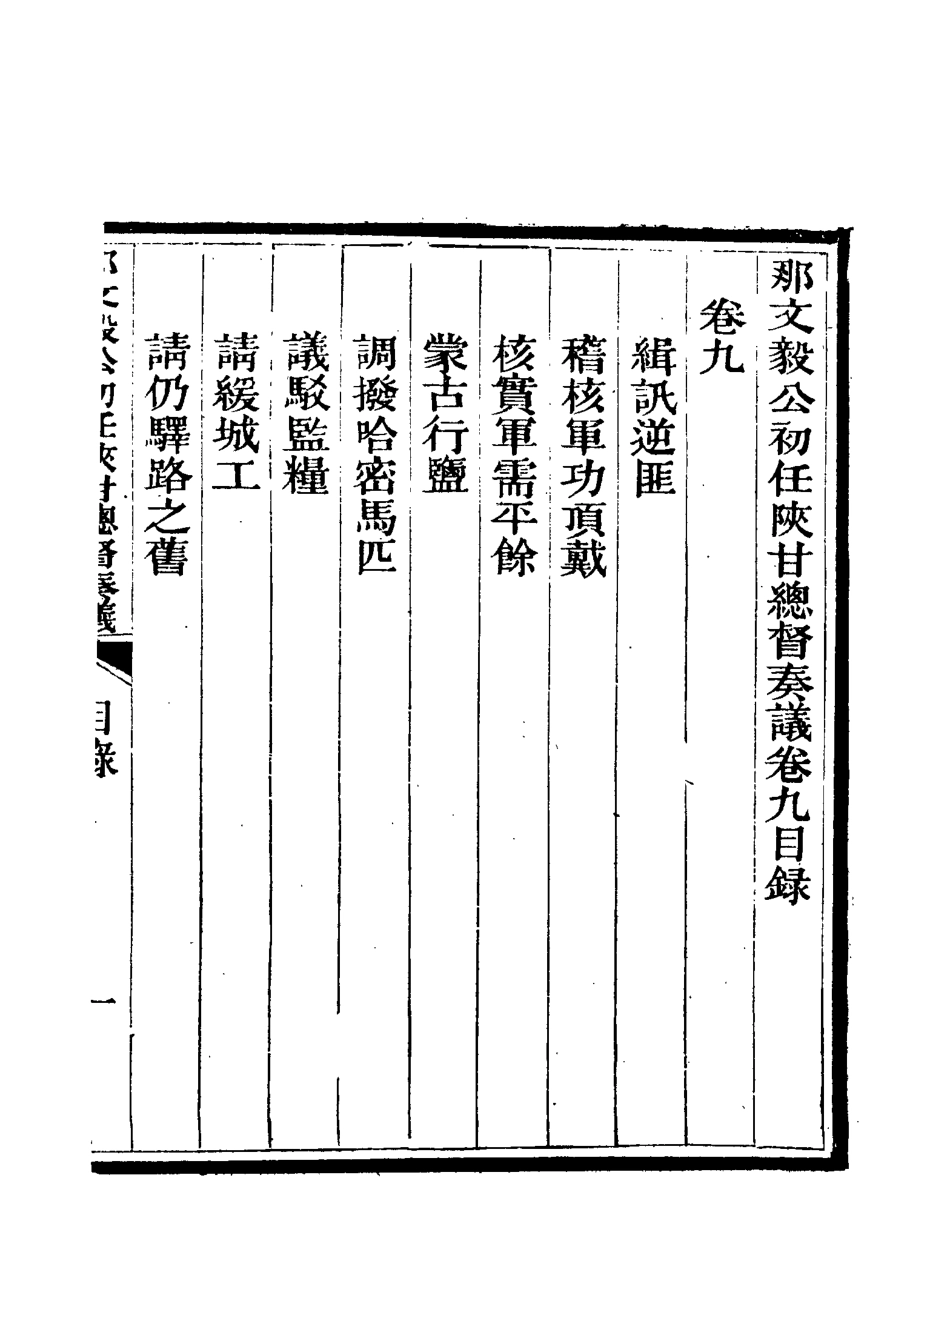 那文毅公初任陝甘總督奏議卷九目録
卷九
緝訊逆匪
稽核軍功頂戴
核實軍需平餘
蒙古行鹽
調撥哈密馬匹
議駁監糧
請緩城工
請仍驛路之舊
那文毅公初任陝甘總督奏議
目錄
一